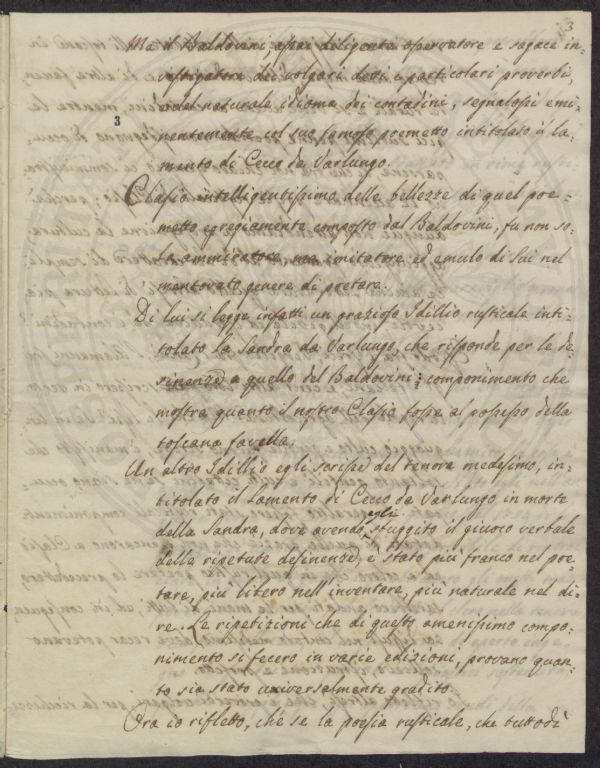 3
Ma il Baldovini, assai diligente osservatore e sagace in-
vestigatore dei volgari detti e particolari proverbi,
e del naturale idioma dei contadini, segnalossi emi-
3
nentemente col suo famoso poemetto intitolato il la-
mento di Cecco da Varlungo.
Clasio intelligentissimo delle bellezze di quel poe-
metto egregiamente composto dal Baldovini, fu non so-
lo ammiratore, ma imitatore ed emulo di lui nel
mentovato genere di poetare.
Di lui si legge infatti un grazioso Idillio rusticale inti-
tolato la Sandra da Varlungo, che risponde per le de-
sinenze a quello del Baldovini: componimento che
mostra quanto il nostro Clasio fosse al possesso della
toscana favella.
Un altro Idillio egli scrisse del tenore medesimo, in-
titolato il Lamento di Cecco da Varlungo in morte
della Sandra, dove avendo egli sfuggito il giuoco verbale
delle ripetute desinenze, è stato più franco nel poe-
tare, più libero nell'inventare, più naturale nel di-
re. Le ripetizioni che di questo amenissimo compo-
nimento si fecero in varie edizioni, provano quan-
to sia stato universalmente gradito.
Ora io rifletto, che se la poesia rusticale, che tuttodì